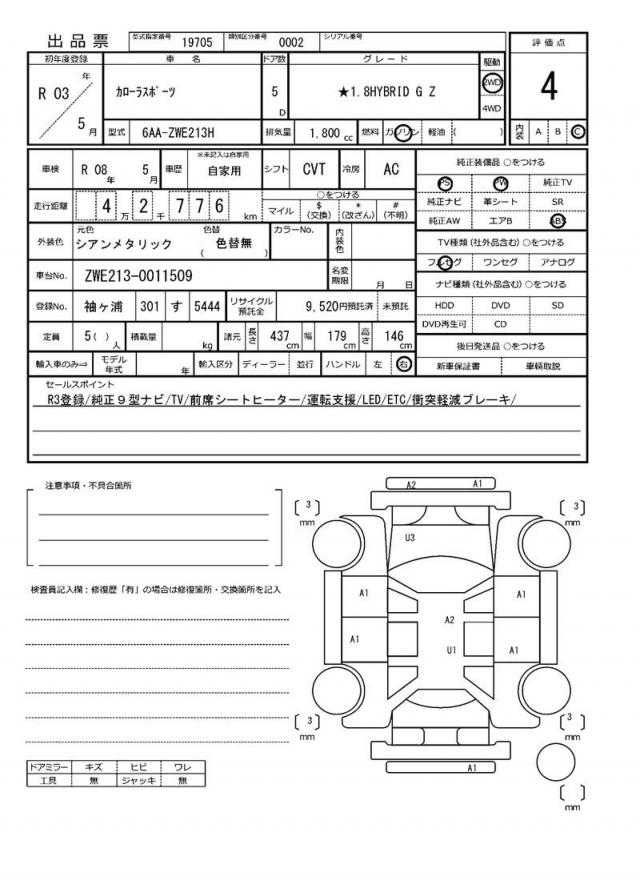 出品票 型式指定番号 19705 類別区分番号 0002 シリアル番号
評価点
4
内装 A B C
初年度登録 車名 ドア数 グレード 駆動
R 03 年 5 月
カローラスポーツ 5 D ★1.8HYBRID G Z 2WD
4WD
型式 6AA-ZWE213H 排気量 1.800 cc 燃料 ガソリン 軽油 ( )
車検 R 08 年 5 月 車歴 ※未記入は自家用 自家用 シフト CVT 冷房 AC
走行距離 4 万 2 千 7 7 6 km
○をつける
マイル $(交換) *(改ざん) #(不明)
外装色 元色 シアンメタリック 色替 ( 色替無 ) カラーNo. 内装色
車台No. ZWE213-0011509 名変期限 月 日
登録No. 袖ヶ浦 301 す 5444 リサイクル預託金 9,520円預託済 未預託
定員 5( ) 人 積載量 kg 諸元 長さ 437 cm 幅 179 cm 高さ 146 cm
輸入車のみ⇒ モデル年式 年 輸入区分 ディーラー 並行 ハンドル 左 右
純正装備品 ○をつける
PS PW 純正TV
純正ナビ 革シート SR
純正AW エアB ABS
TV種類 (社外品含む) ○をつける
フルセグ ワンセグ アナログ
ナビ種類 (社外品含む) ○をつける
HDD DVD SD
DVD再生可 CD
後日発送品 ○をつける
新車保証書 車輌取説
セールスポイント
R3登録/純正９型ナビ/TV/前席シートヒーター/運転支援/LED/ETC/衝突軽減ブレーキ/
注意事項・不具合箇所
検査員記入欄：修復歴「有」の場合は修復箇所・交換箇所を記入
ドアミラー キズ ヒビ ワレ
工具 無 ジャッキ 無
A2 A1
[ 3 ] mm [ 3 ] mm
U3
A1 A1
A2
A1 U1 A1
[ 3 ] mm [ 3 ] mm
A1
[ ] mm